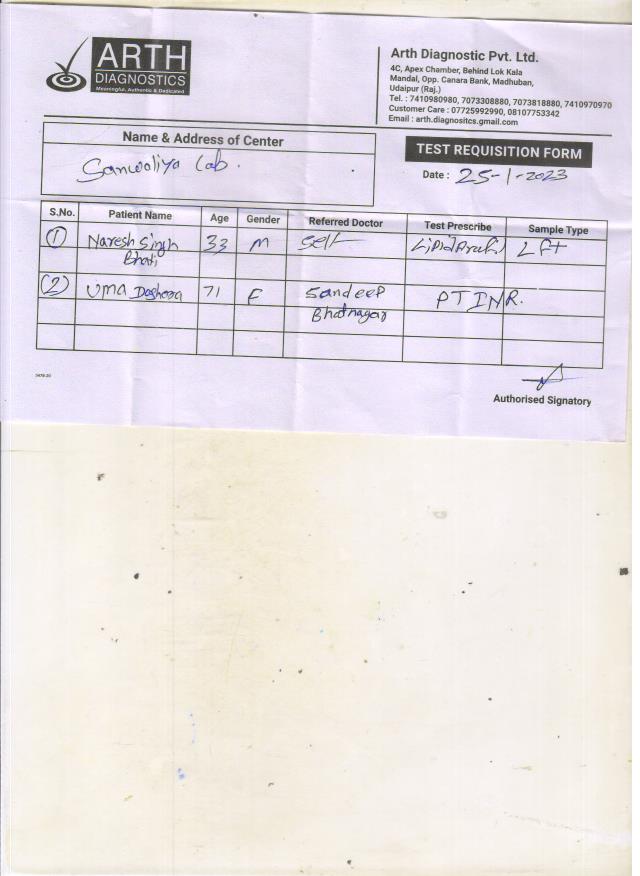 ARTH
DIAGNOSTICS
Meaningful, Authentic & Dedicated
Arth Diagnostic Pvt. Ltd.
4C, Apex Chamber, Behind Lok Kala
Mandal, Opp. Canara Bank, Madhuban,
Udaipur (Raj.)
Tel. : 7410980980, 7073308880, 7073818880, 7410970970
Customer Care : 07725992990, 08107753342
Email : arth.diagnositcs.gmail.com
Name & Address of Center
Sanwaliya Lab.
TEST REQUISITION FORM
Date : 25-1-2023
S.No. Patient Name Age Gender Referred Doctor Test Prescribe Sample Type
(1) Naresh Singh 33 M Self Lipid Profil Lft
Bhati
(2) Uma Dashora 71 F Sandeep PTINR.
Bhatnagar
Authorised Signatory